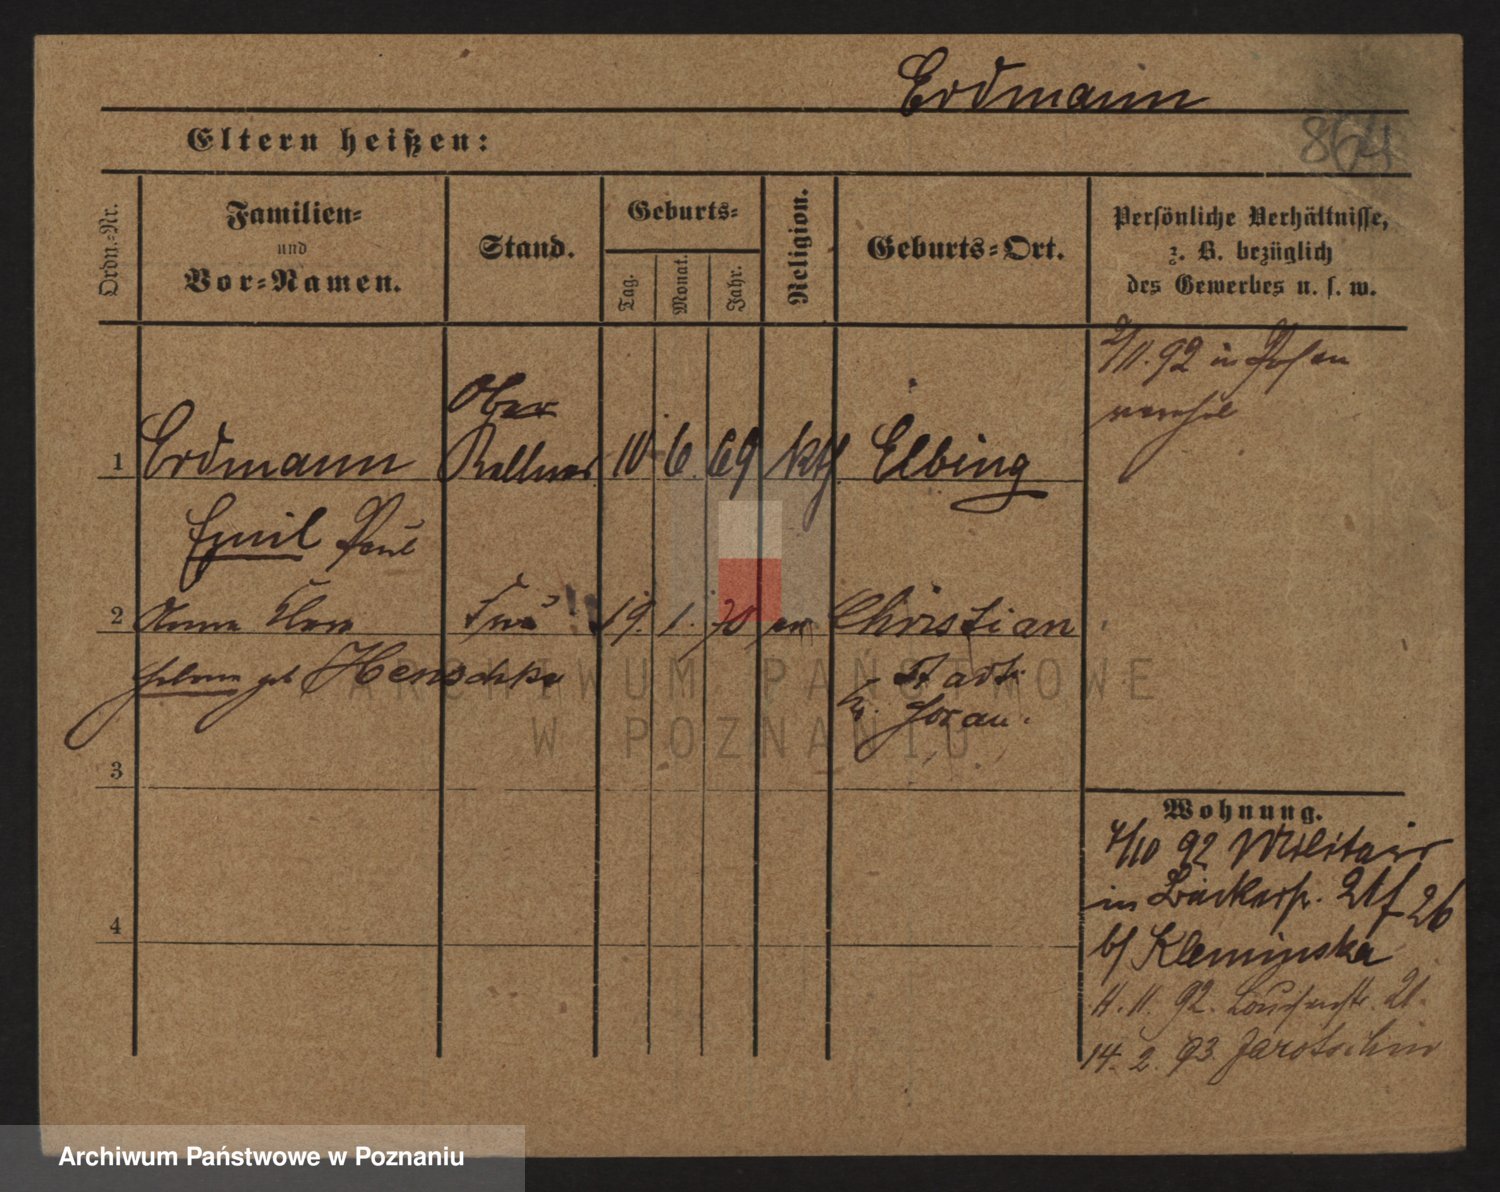 Erdmann
864
Eltern heißen:
Ordn.-Nr.
Familien-
und
Vor-Namen.
Stand.
Geburts-
Tag.
Monat.
Jahr.
Religion.
Geburts-Ort.
Persönliche Verhältnisse,
z. B. bezüglich
des Gewerbes u. s. w.
2/11. 92 in Posen
Ober
1 Erdmann Kellner 10 6. 69 kth. Elbing
Emil Paul
2 Anna Clara 19. 1. 70 ev Christian
geb Henschke Stadt
Kr. Sorau.
3
4
Wohnung.
4/10 92 Militair
in Bäckerstr. 21 26
b/ Kleminska
11. 11. 92. Louisenstr. 21.
14. 2. 93. Jarotschin
ARCHIWUM PAŃSTWOWE
W POZNANIU
Archiwum Państwowe w Poznaniu